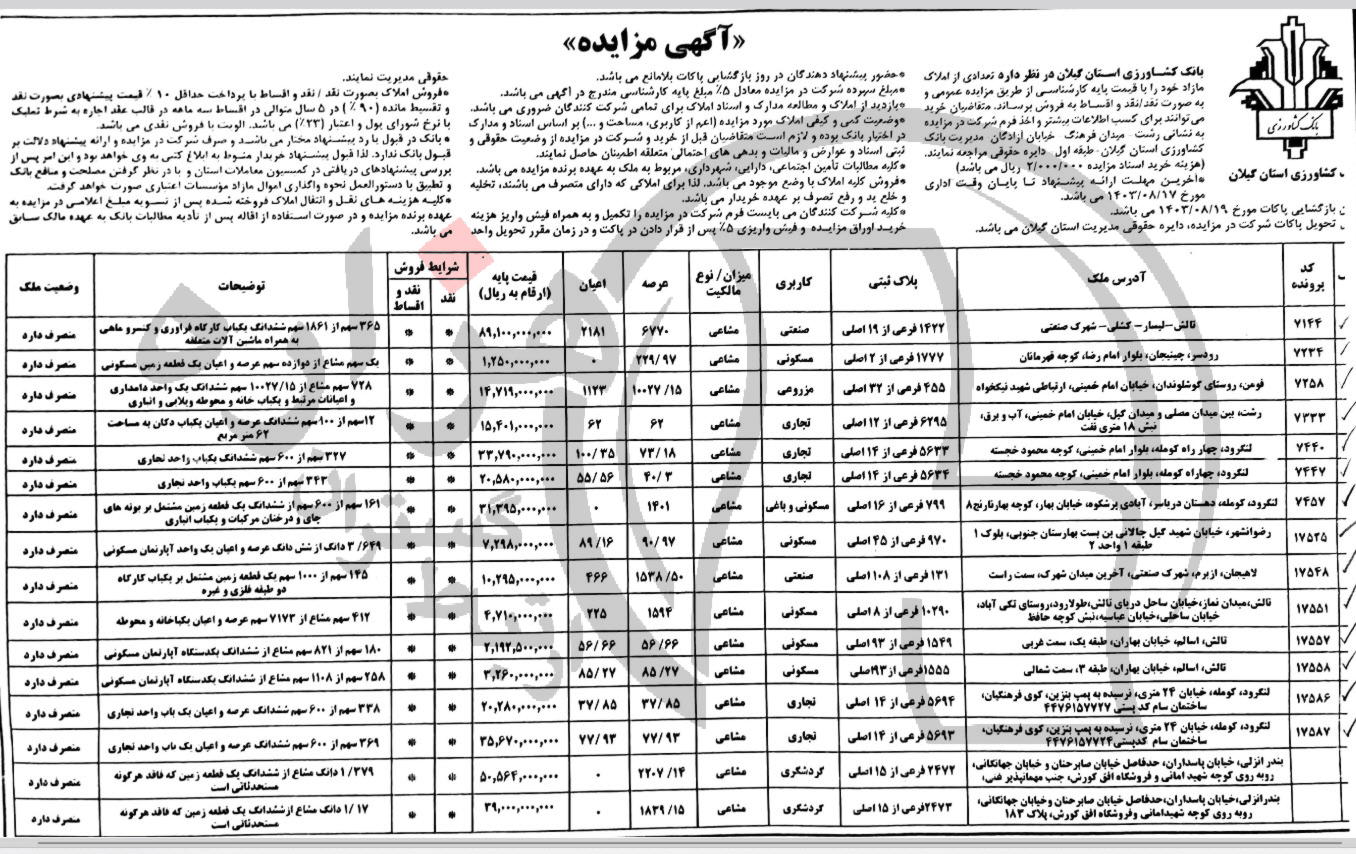 «آگهی مزایده»
بانک کشاورزی
بانک کشاورزی استان گیلان
بانک کشاورزی استان گیلان در نظر دارد تعدادی از املاک
مازاد خود را با قیمت پایه کارشناسی از طریق مزایده عمومی و
به صورت نقد/نقد و اقساط به فروش برساند. متقاضیان خرید
می‌توانند برای کسب اطلاعات بیشتر و اخذ فرم شرکت در مزایده
به نشانی رشت - میدان فرهنگ خیابان آزادگان مدیریت بانک
کشاورزی استان گیلان-طبقه اول- دایره حقوقی مراجعه نمایند.
(هزینه خرید اسناد مزایده ۲/۰۰۰/۰۰۰ ریال می باشد)
*آخرین مهلت ارائه پیشنهاد تا پایان وقت اداری
مورخ ۱۴۰۳/۰۸/۱۷ می باشد.
بازگشایی پاکات مورخ ۱۴۰۳/۰۸/۱۹ می باشد.
تحویل پاکات شرکت در مزایده، دایره حقوقی مدیریت استان گیلان می باشد.
*حضور پیشنهاد دهندگان در روز بازگشایی پاکات بلامانع می باشد.
*مبلغ سپرده شرکت در مزایده معادل ۵٪ مبلغ پایه کارشناسی مندرج در آگهی می باشد.
*بازدید از املاک و مطالعه مدارک و اسناد املاک برای تمامی شرکت کنندگان ضروری می باشد.
*وضعیت کمی و کیفی املاک مورد مزایده (اعم از کاربری، مساحت و ...) بر اساس اسناد و مدارک
در اختیار بانک بوده و لازم است متقاضیان قبل از خرید و شرکت در مزایده از وضعیت حقوقی و
ثبتی اسناد و عوارض و مالیات و بدهی های احتمالی متعلقه اطمینان حاصل نمایند.
*کلیه مطالبات تأمین اجتماعی، دارایی، شهرداری، مربوط به ملک به عهده برنده مزایده می باشد.
*فروش کلیه املاک با وضع موجود می باشد. لذا برای املاکی که دارای متصرف می باشند، تخلیه
و خلع ید و رفع تصرف بر عهده خریدار می باشد.
*کلیه شرکت کنندگان می بایست فرم شرکت در مزایده را تکمیل و به همراه فیش واریز هزینه
خرید اوراق مزایده و فیش واریزی ۵٪ پس از قرار دادن در پاکت و در زمان مقرر تحویل واحد
حقوقی مدیریت نمایند.
*فروش املاک بصورت نقد / نقد و اقساط با پرداخت حداقل ۱۰ ٪ قیمت پیشنهادی بصورت نقد
و تقسیط مانده (۹۰٪) در ۵ سال متوالی در اقساط سه ماهه در قالب عقد اجاره به شرط تملیک
با نرخ شورای پول و اعتبار (۲۳٪) می باشد. الویت با فروش نقدی می باشد.
*بانک در قبول یا رد پیشنهاد مختار می باشد و صرف شرکت در مزایده و ارائه پیشنهاد دلالت بر
قبول بانک ندارد. لذا قبول پیشنهاد خریدار منوط به ابلاغ کتبی به وی خواهد بود و این امر پس از
بررسی پیشنهادهای دریافتی در کمیسیون معاملات استان و با در نظر گرفتن مصلحت و منافع بانک
و تطبیق با دستورالعمل نحوه واگذاری اموال مازاد مؤسسات اعتباری صورت خواهد گرفت.
*کلیه هزینه های نقل و انتقال املاک فروخته شده پس از تسویه مبلغ اعلامی در مزایده به
عهده برنده مزایده و در صورت استفاده از اقاله پس از تأدیه مطالبات بانک به عهده مالک سابق
می باشد.
کد پرونده آدرس ملک پلاک ثبتی کاربری میزان / نوع مالکیت عرصه اعیان قیمت پایه (ارقام به ریال) شرایط فروش نقد نقد و اقساط توضیحات وضعیت ملک
۷۱۴۴ تالش-لیسار- کشلی- شهرک صنعتی ۱۴۲۲ فرعی از ۱۹ اصلی صنعتی مشاعی ۶۷۷۰ ۲۱۸۱ ۸۹,۱۰۰,۰۰۰,۰۰۰ * * ۳۶۵ سهم از ۱۸۶۱ سهم ششدانگ یکباب کارگاه فرآوری و کنسرو ماهی به همراه ماشین آلات متعلقه متصرف دارد
۷۲۳۴ رودسر، چینیجان، بلوار امام رضا، کوچه قهرمانان ۱۷۷۷ فرعی از ۲ اصلی مسکونی مشاعی ۲۲۹/۹۷ ۰ ۱,۲۵۰,۰۰۰,۰۰۰ * * یک سهم مشاع از دوازده سهم عرصه و اعیان یک قطعه زمین مسکونی متصرف دارد
۷۲۵۸ فومن، روستای گوشلوندان، خیابان امام خمینی، ارتباطی شهید نیکخواه ۴۵۵ فرعی از ۳۲ اصلی مزروعی مشاعی ۱۰۰۲۷/۱۵ ۱۱۲۳ ۱۴,۷۱۹,۰۰۰,۰۰۰ * * ۷۲۸ سهم مشاع از ۱۰۰۲۷/۱۵ سهم ششدانگ یک واحد دامداری و اعیانات مرتبط و یکباب خانه و محوطه ویلایی و انباری متصرف دارد
۷۳۳۳ رشت، بین میدان مصلی و میدان گیل، خیابان امام خمینی، آب و برق، نبش ۱۸ متری نفت ۶۲۹۵ فرعی از ۱۲ اصلی تجاری مشاعی ۶۲ ۶۲ ۱۵,۴۰۱,۰۰۰,۰۰۰ * * ۱۲سهم از ۱۰۰سهم ششدانگ عرصه و اعیان یکباب دکان به مساحت ۶۲ متر مربع متصرف دارد
۷۴۴۰ لنگرود، چهار راه کومله، بلوار امام خمینی، کوچه محمود خجسته ۵۶۳۳ فرعی از ۱۴ اصلی تجاری مشاعی ۷۳/۱۸ ۱۰۰/۳۵ ۳۳,۷۹۰,۰۰۰,۰۰۰ * * ۳۲۷ سهم از ۶۰۰ سهم ششدانگ یکباب واحد تجاری متصرف دارد
۷۴۴۷ لنگرود، چهاراه کومله، بلوار امام خمینی، کوچه محمود خجسته ۵۶۳۴ فرعی از ۱۴ اصلی تجاری مشاعی ۴۰/۳ ۵۵/۵۶ ۲۰,۵۸۰,۰۰۰,۰۰۰ * * ۳۴۳ سهم از ۶۰۰ سهم یکباب واحد تجاری متصرف دارد
۷۴۵۷ لنگرود، کومله، دهستان دریاسر، آبادی پرشکوه، خیابان بهار، کوچه بهارنارنج۸ ۷۹۹ فرعی از ۱۶ اصلی مسکونی و باغی مشاعی ۱۴۰۱ ۰ ۳۱,۳۹۵,۰۰۰,۰۰۰ * * ۱۶۱ سهم از ۶۰۰ سهم از ششدانگ یک قطعه زمین مشتمل بر بوته های چای و درختان مرکبات و یکباب انباری متصرف دارد
۱۷۵۲۵ رضوانشهر، خیابان شهید گیل جالانی بن بست بهارستان جنوبی، بلوک ۱ طبقه ۱ واحد ۲ ۹۷۰ فرعی از ۴۵ اصلی مسکونی مشاعی ۹۰/۹۷ ۸۹/۱۶ ۷,۲۹۸,۰۰۰,۰۰۰ * * ۳/۶۴۹ دانگ از شش دانگ عرصه و اعیان یک واحد آپارتمان مسکونی متصرف دارد
۱۷۵۴۸ لاهیجان، ازبرم، شهرک صنعتی، آخرین میدان شهرک، سمت راست ۱۳۱ فرعی از ۱۰۸ اصلی صنعتی مشاعی ۱۵۳۸/۵۰ ۴۶۶ ۱۰,۲۹۵,۰۰۰,۰۰۰ * * ۱۴۵ سهم از ۱۰۰۰ سهم یک قطعه زمین مشتمل بر یکباب کارگاه دو طبقه فلزی و غیره متصرف دارد
۱۷۵۵۱ تالش،میدان نماز،خیابان ساحل دریای تالش،طولارود،روستای تکی آباد، خیابان ساحلی،خیابان عباسیه،نبش کوچه حافظ ۱۰۲۹۰ فرعی از ۸ اصلی مسکونی مشاعی ۱۵۹۴ ۲۲۵ ۴,۷۱۰,۰۰۰,۰۰۰ * * ۴۱۲ سهم مشاع از ۷۱۷۳ سهم عرصه و اعیان یکبابخانه و محوطه متصرف دارد
۱۷۵۵۷ تالش، اسالم، خیابان بهاران، طبقه یک، سمت غربی ۱۵۴۹ فرعی از ۹۳ اصلی مسکونی مشاعی ۵۶/۶۶ ۵۶/۶۶ ۲,۱۹۲,۵۰۰,۰۰۰ * * ۱۸۰ سهم از ۸۲۱ سهم مشاع از ششدانگ یکدستگاه آپارتمان مسکونی متصرف دارد
۱۷۵۵۸ تالش، اسالم، خیابان بهاران، طبقه ۳، سمت شمالی ۱۵۵۵فرعی از ۹۳اصلی مسکونی مشاعی ۸۵/۲۷ ۸۵/۲۷ ۳,۲۶۰,۰۰۰,۰۰۰ * * ۲۵۸ سهم از ۱۱۰۸ سهم مشاع از ششدانگ یکدستگاه آپارتمان مسکونی متصرف دارد
۱۷۵۸۶ لنگرود، کومله، خیابان ۲۴ متری، نرسیده به پمپ بنزین، کوی فرهنگیان، ساختمان سام کد پستی ۴۴۷۶۱۵۷۷۲۷ ۵۶۹۴ فرعی از ۱۴ اصلی تجاری مشاعی ۳۷/۸۵ ۳۷/۸۵ ۲۰,۲۸۰,۰۰۰,۰۰۰ * * ۳۳۸ سهم از ۶۰۰ سهم ششدانگ عرصه و اعیان یک باب واحد تجاری متصرف دارد
۱۷۵۸۷ لنگرود، کومله، خیابان ۲۴ متری، نرسیده به پمپ بنزین، کوی فرهنگیان، ساختمان سام کدپستی۴۴۷۶۱۵۷۷۲۴ ۵۶۹۳ فرعی از ۱۴ اصلی تجاری مشاعی ۷۷/۹۳ ۷۷/۹۳ ۳۵,۶۷۰,۰۰۰,۰۰۰ * * ۳۶۹ سهم از ۶۰۰ سهم ششدانگ عرصه و اعیان یک باب واحد تجاری متصرف دارد
بندر انزلی، خیابان پاسداران، حدفاصل خیابان صابرحنان و خیابان جهانگانی، روبه روی کوچه شهید امانی و فروشگاه افق کورش، جنب مهمانپذیر غنی، ۲۴۷۲ فرعی از ۱۵ اصلی گردشگری مشاعی ۲۲۰۷/۱۴ ۰ ۵۰,۵۶۴,۰۰۰,۰۰۰ * * ۱/۳۷۹ دانگ مشاع از ششدانگ یک قطعه زمین که فاقد هرگونه مستحدثاتی است متصرف دارد
بندرانزلی،خیابان پاسداران،حدفاصل خیابان صابرحنان وخیابان جهانگانی، روبه روی کوچه شهیدامانی وفروشگاه افق کورش، پلاک ۱۸۳ ۲۴۷۳فرعی از ۱۵ اصلی گردشگری مشاعی ۱۸۳۹/۱۵ ۰ ۳۹,۰۰۰,۰۰۰,۰۰۰ * * ۱/۱۷ دانگ مشاع ازششدانگ یک قطعه زمین که فاقد هرگونه مستحدثاتی است متصرف دارد